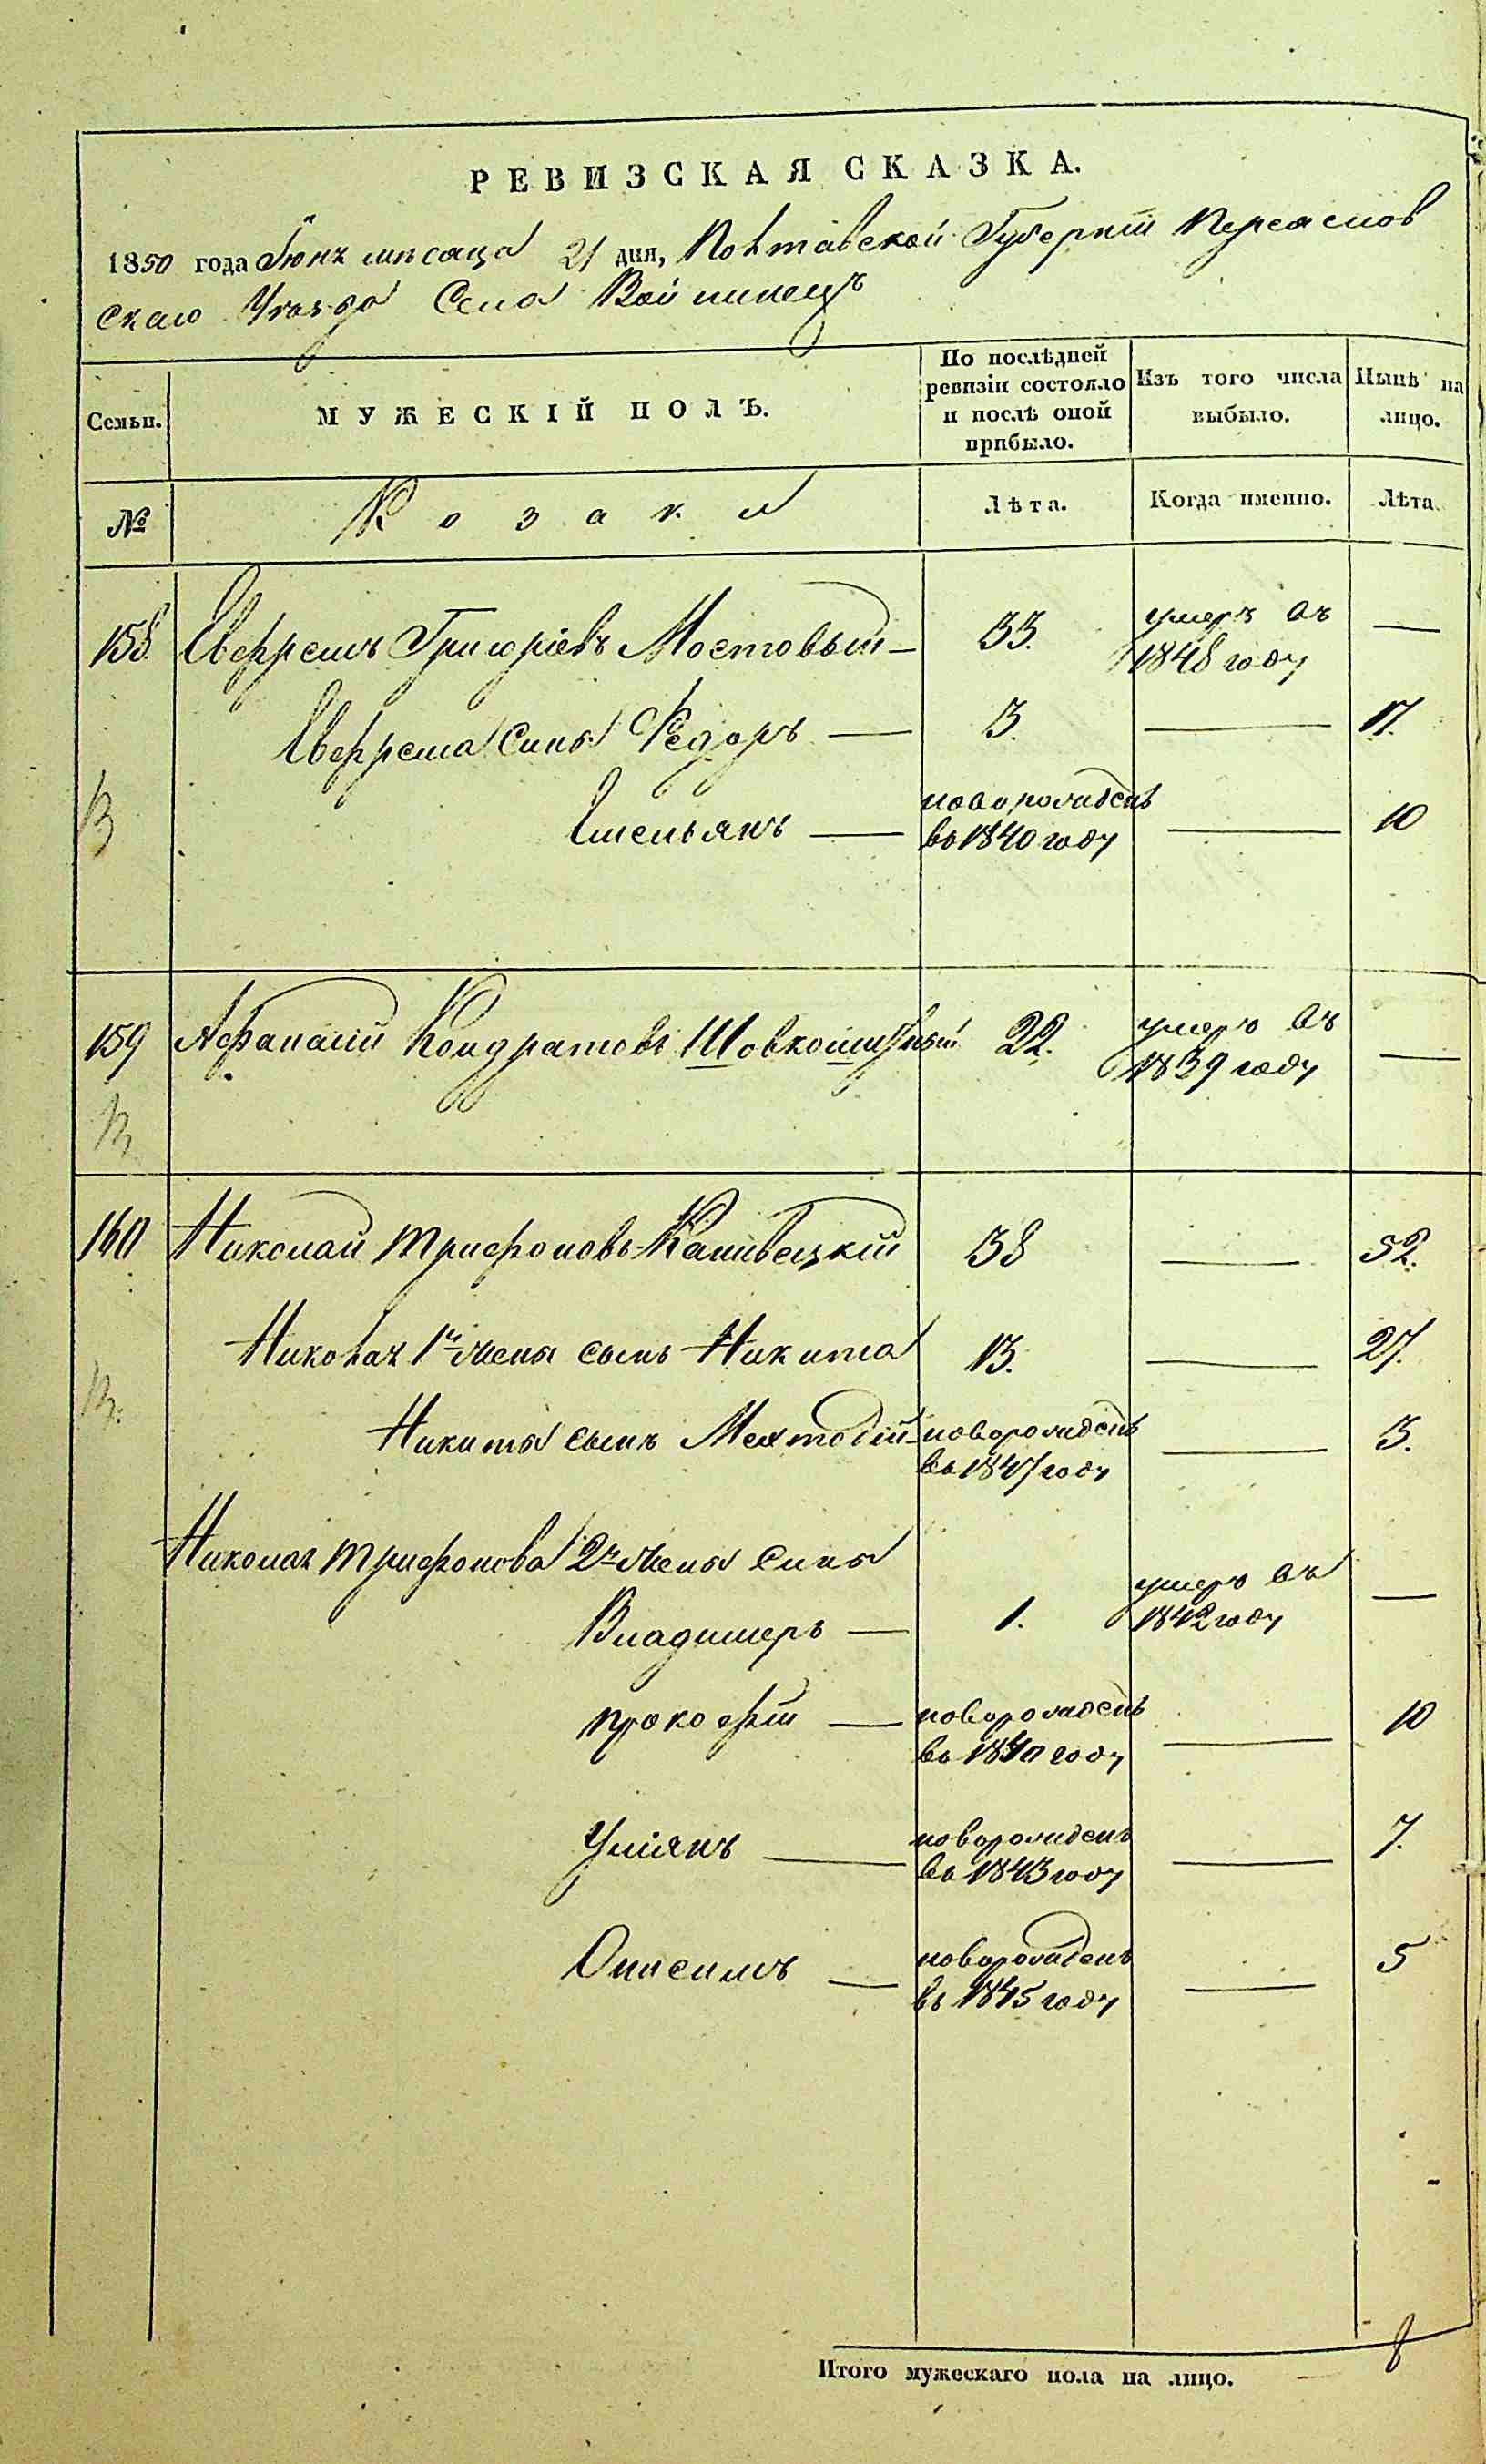 РЕВИЗСКАЯ СКАЗКА.
1850 года Іюня мѣсяца 21 дня, Полтавской Губерніи Переяслов
скаго Уѣзда Села Войтинецъ
Семьи. МУЖЕСКІЙ ПОЛЪ. По послѣдней ревизіи состояло и послѣ оной прибыло. Изъ того числа выбыло. Нынѣ на лицо.
№ Козаки Лѣта. Когда именно. Лѣта.
158. Евфремъ Григоріевъ Мостовый — 33. умеръ въ 1848 году —
Евфрема сынъ Федоръ — 3. — 17.
Емельянъ — новорожденъ во 1840 году — 10
159 Афанасій Кондратовъ Шовкошитный 22. умеръ въ 1839 году —
160 Николай Трифоновъ Каливецкій 38 — 52.
Николая 1й жены сынъ Никита 13. — 27.
Никиты сынъ Мехтодій новорожденъ во 1847 году — 3.
Николая Трифонова 2й жены сына
Владимеръ — 1. умеръ въ 1842 году —
Прокофій — новорожденъ во 1840 году — 10
Уліянъ — новорожденъ во 1843 году — 7.
Онисимъ — новорожденъ въ 1845 году — 5
Итого мужескаго пола на лицо. — 8